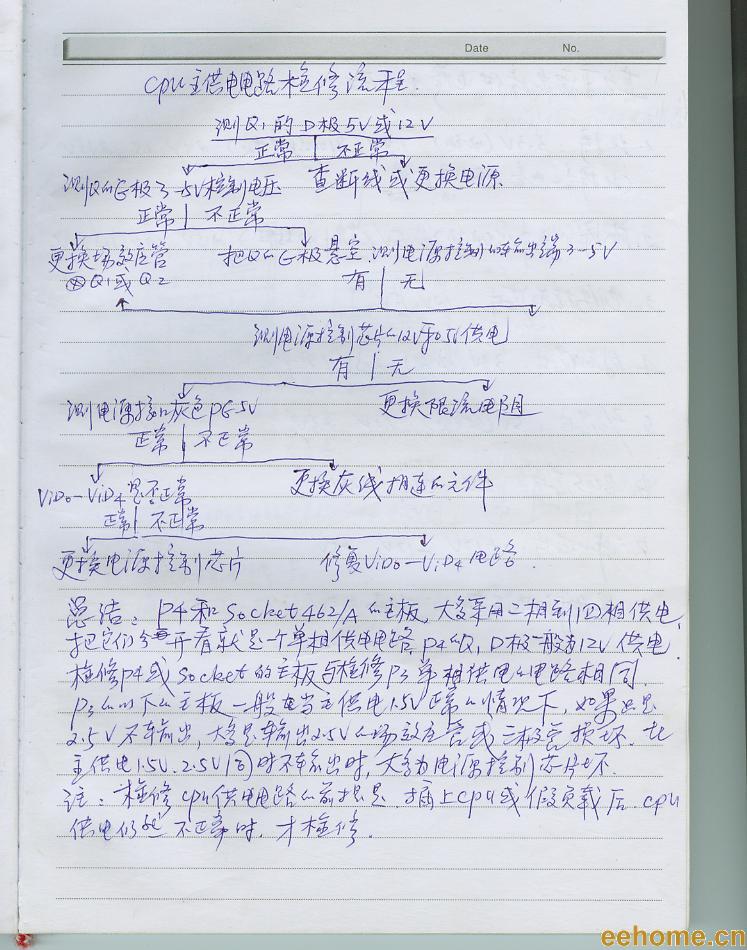 Date No.
cpu主供电电路检修流程.
测Q1的D极5V或12V
正常 不正常
测Q的G极3-5V控制电压 查断线或更换电源
正常 不正常
更换场效应管 把Q的G极悬空.测电源控制的输出端3-5V
Q1或Q2 有 无
测电源控制芯片的12V和5V供电
有 无
测电源接口灰色PG5V 更换限流电阻
正常 不正常
ViD0-ViD4是否正常 更换灰线相连的元件
正常 不正常
更换电源控制芯片 修复ViD0-ViD4电路.
总结:P4和Socket462/A的主板,大多采用二相到四相供电,
把它们分开看就是一个单相供电电路,P4的Q1 D极一般为12V供电.
检修P4或Socket的主板与检修P3单相供电的电路相同.
P3的以下的主板一般电当主供电1.5V正常的情况下,如果只是
2.5V不输出,大多是输出2.5V的场效应管或三极管损坏.
主供电1.5V.2.5V同时不输出时,大多为电源控制芯片坏.
注:检修cpu供电电路的前提是.插上cpu或假负载后.cpu
供电仍然不正常时.才检修.
eehome.cn